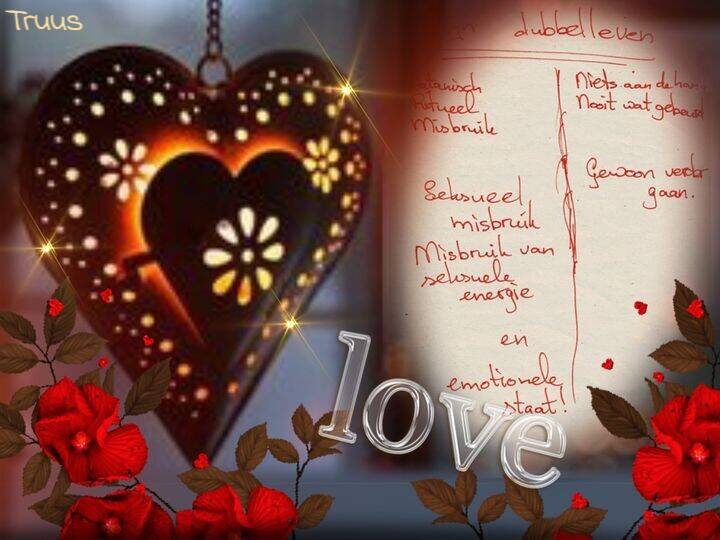 Truus
dubbelleven
Misbruik
Seksueel
misbruik
Misbruik van
seksuele
energie
en
emotionele
staat!
Niets aan de hand
Nooit wat gebeurd
Gewoon verder
gaan.
love